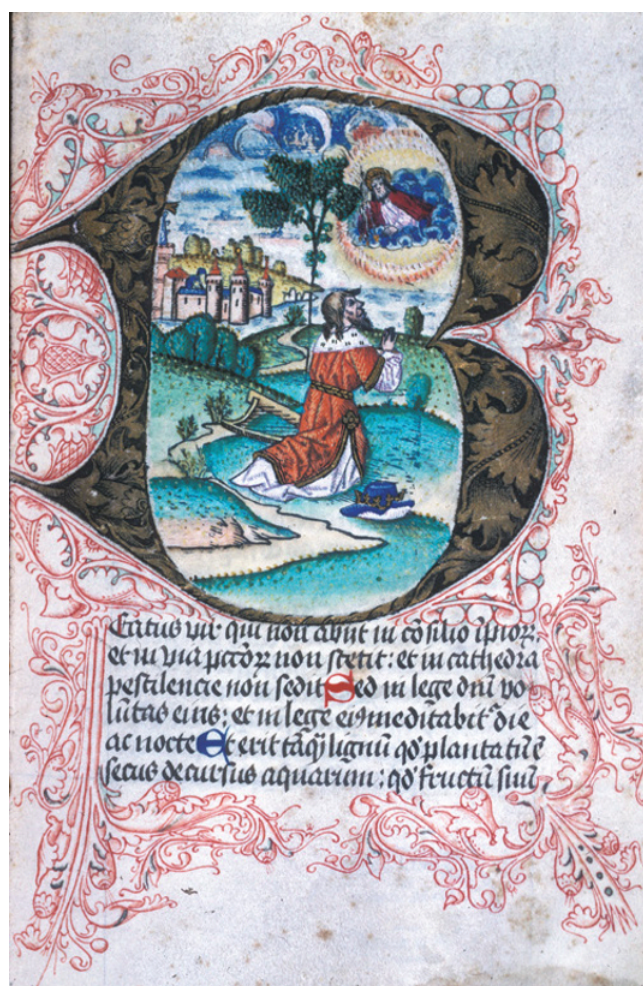 B
Eatus vir qui non abiit in cõsilio ipiorꝝ
et in via pctõꝝ non stetit: et in cathedra
pestilencie non sedit Sed in lege dnĩ vo-
luntas eius; et in lege ei9 meditabit᷑ die
ac nocte Et erit tãq̃ lignũ qd' plantatũ ẽ
secus decursus aquarum: qd' fructũ suũ